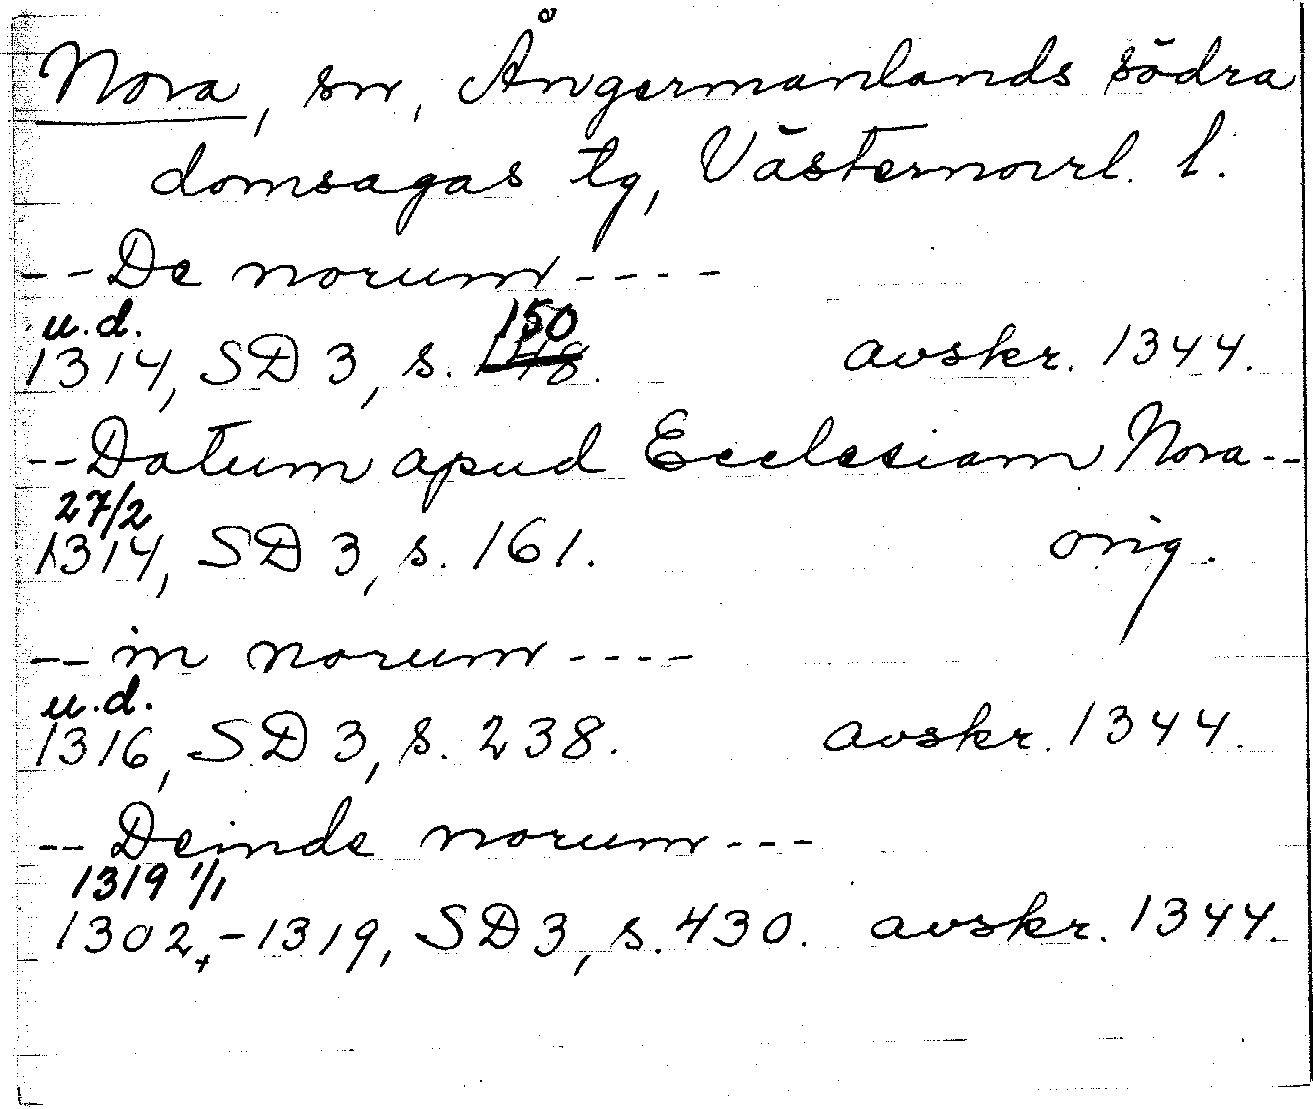 Nora, sn, Ångermanlands södra
domsagas tg, Västernorrl. l.
-- De norum ----
u.d. 150
1314, SD 3, s. 148. avskr. 1344.
-- Datum apud Ecclesiam Nora --
27/2
1314, SD 3, s. 161. orig.
-- in norum ----
u.d.
1316, SD 3, s. 238. avskr. 1344.
-- Deinde norum ---
1319 1/1
1302 - 1319, SD 3, s. 430. avskr. 1344.